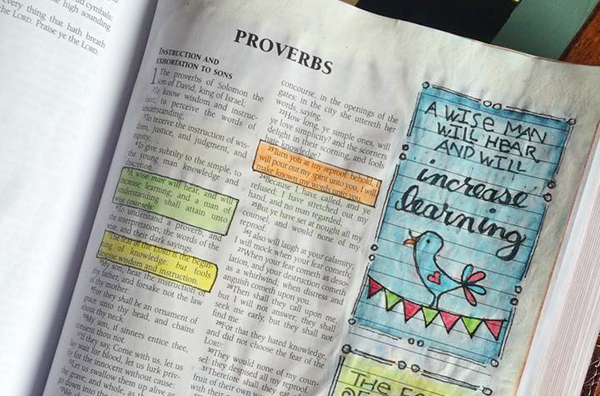 cymbals:
high sounding
every thing that hath breath
the LORD. Praise ye the LORD.
PROVERBS
INSTRUCTION AND
EXHORTATION TO SONS
1 The proverbs of Solomon the
son of David, king of Israel,
To know wisdom and instruc-
to perceive the words of
understanding;
To receive the instruction of wis-
dom, justice, and judgment, and
equity;
To give subtilty to the simple, to
the young man knowledge and
discretion.
A wise man will hear, and will
increase learning; and a man of
understanding shall attain unto
wise counsels:
To understand a proverb, and
the interpretation; the words of the
wise, and their dark sayings.
The fear of the LORD is the begin-
ning of knowledge: but fools
despise wisdom and instruction.
My son, hear the instruction of
thy father, and forsake not the law
of thy mother:
For they shall be an ornament of
grace unto thy head, and chains
about thy neck.
My son, if sinners entice thee,
consent thou not.
If they say, Come with us, let us
lay wait for blood, let us lurk priv-
ily for the innocent without cause:
Let us swallow them up alive as
the grave; and whole, as
down into the
concourse, in the openings of the
gates: in the city she uttereth her
words, saying,
22How long, ye simple ones, will
ye love simplicity? and the scorners
delight in their scorning, and fools
hate knowledge?
23Turn you at my reproof: behold, I
will pour out my spirit unto you, I will
make known my words unto you.
24Because I have called, and ye
refused; I have stretched out my
hand, and no man regarded;
But ye have set at nought all my
counsel, and would none of my
reproof:
I also will laugh at your calamity;
I will mock when your fear cometh;
27When your fear cometh as deso-
lation, and your destruction cometh
as a whirlwind; when distress and
anguish cometh upon you.
28Then shall they call upon me,
but I will not answer; they shall
seek me early, but they shall not
find me:
29For that they hated knowledge,
and did not choose the fear of the
LORD:
30They would none of my coun-
sel: they despised all my reproof.
31Therefore shall they eat
fruit of their own
with their
A WISE MAN
WILL HEAR
AND WILL
increase
learning
THE